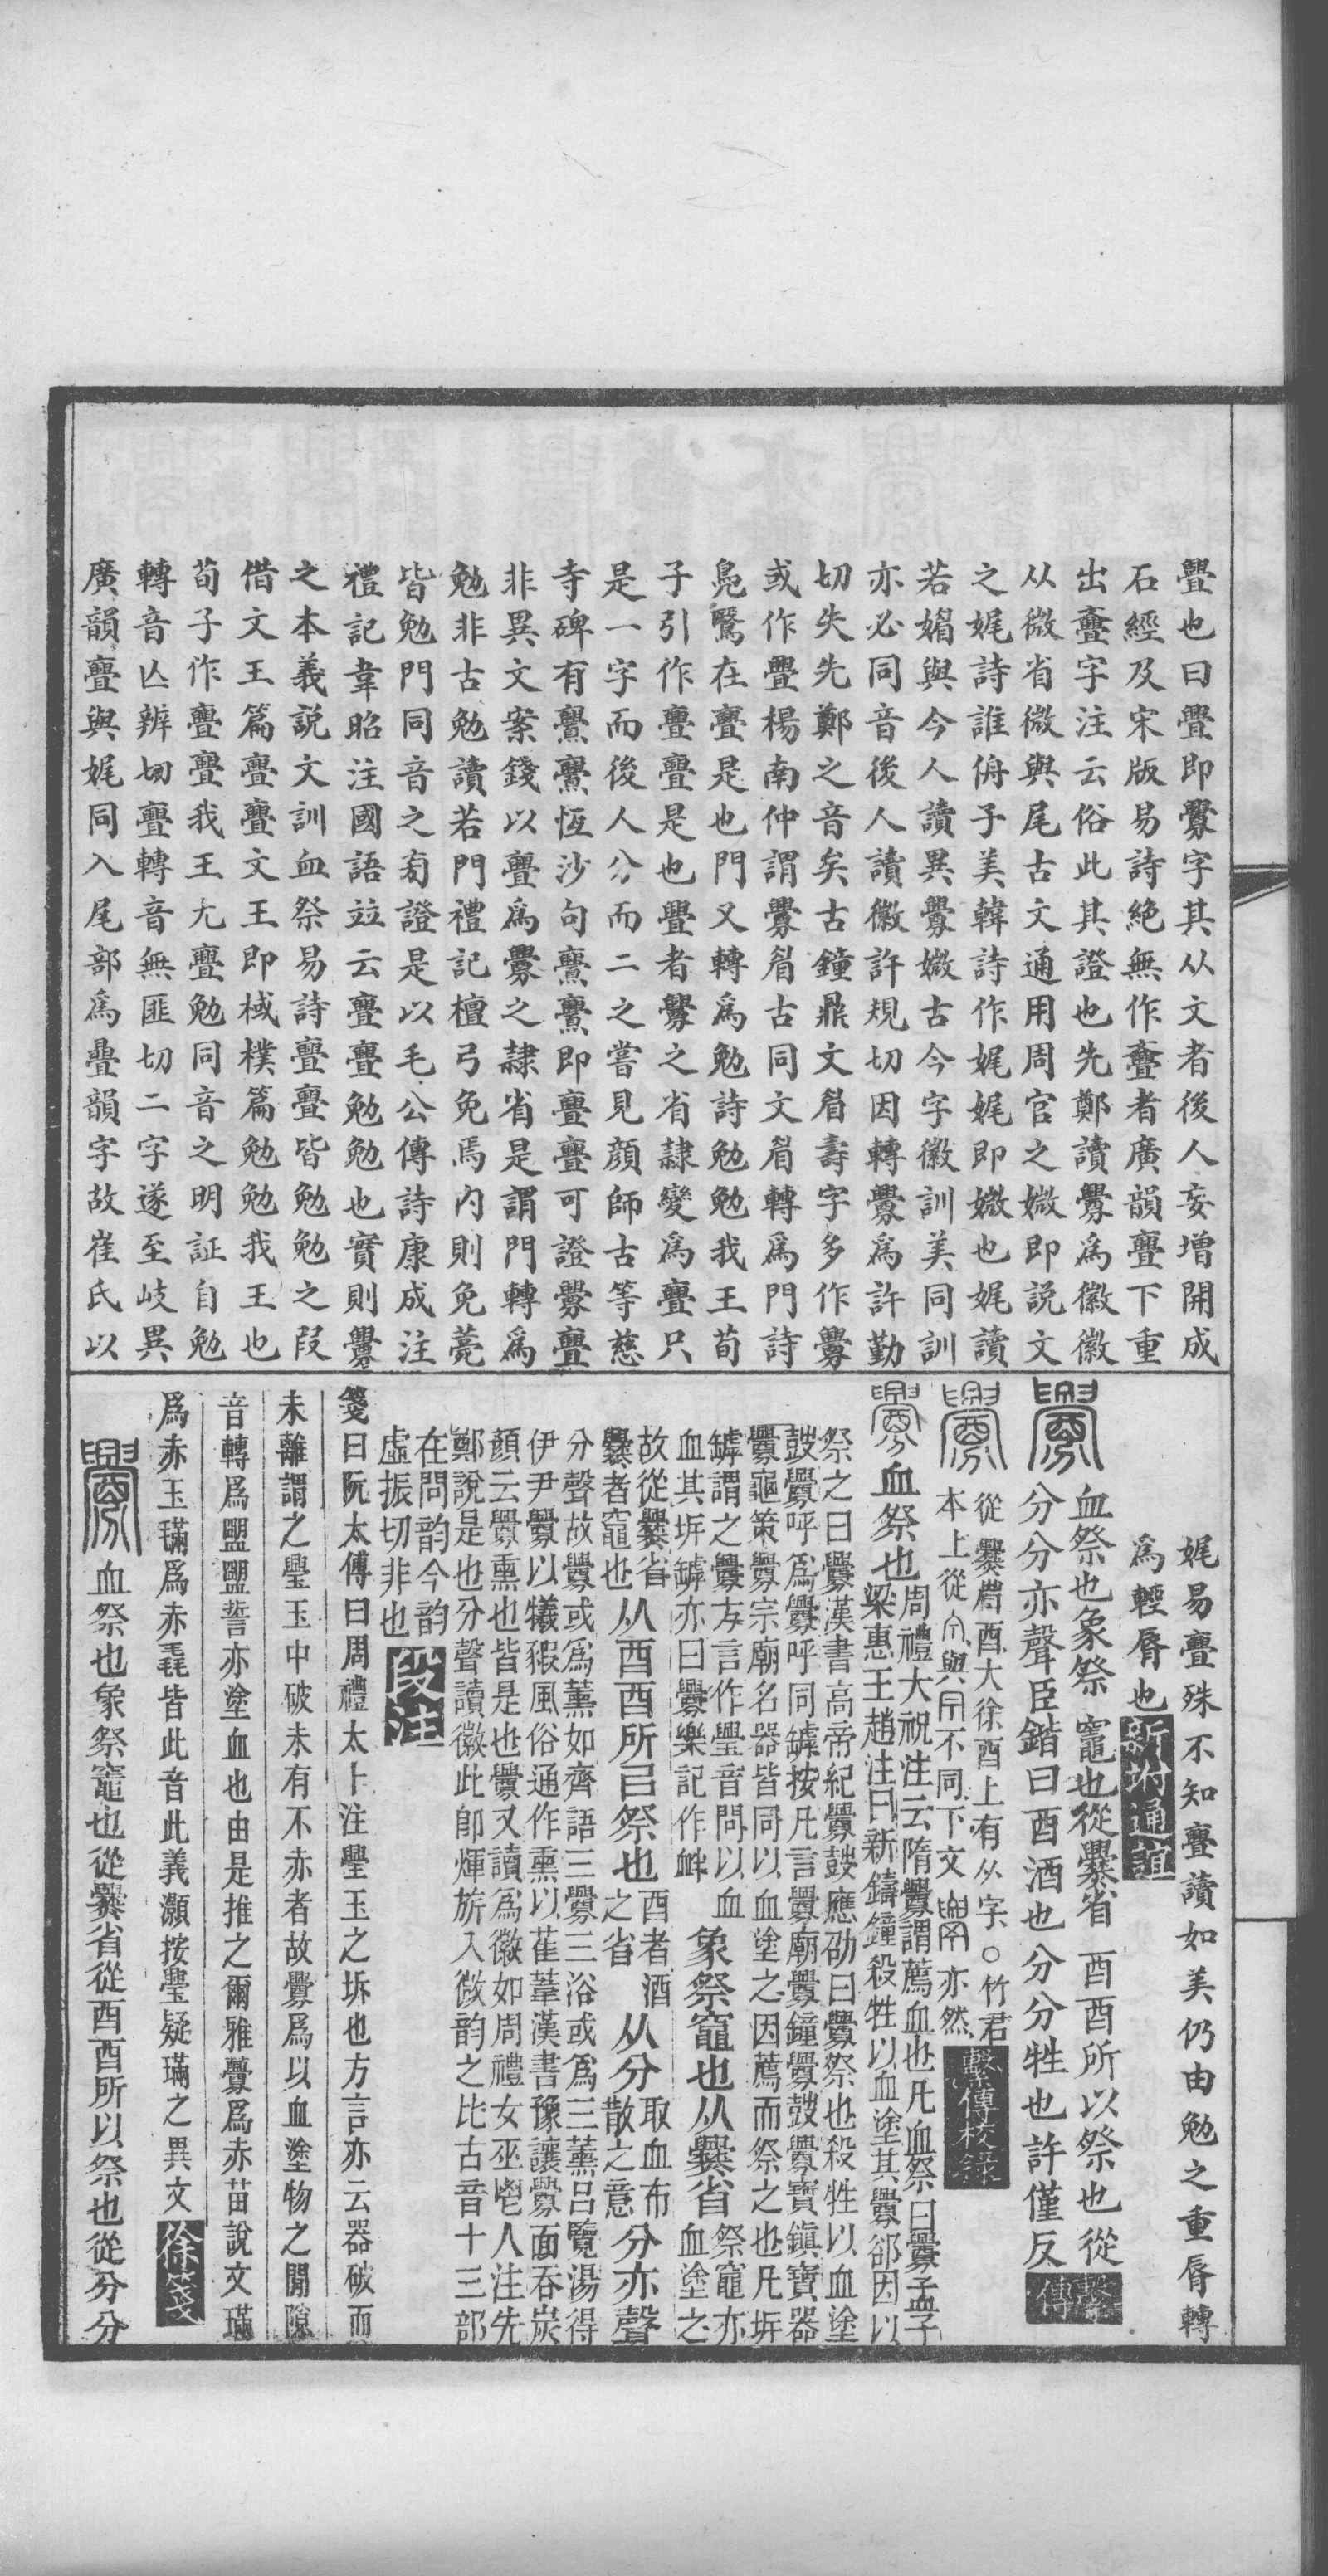 亹也曰亹即釁字其从文者後人妄增開成
石經及宋版易詩絶無作斖者廣韻亹下重
出斖字注云俗此其證也先鄭讀釁爲徽徽
从微省微與尾古文通用周官之媺即説文
之娓詩誰侜予美韓詩作娓娓即媺也娓讀
若媚與今人讀異釁媺古今字徽訓美同訓
亦必同音後人讀徽許規切因轉釁爲許勤
切失先鄭之音矣古鐘鼎文眉壽字多作釁
或作亹楊南仲謂釁眉古同文眉轉爲門詩
鳧鷖在亹是也門又轉爲勉詩勉勉我王荀
子引作亹亹是也亹者釁之省隷變爲亹只
是一字而後人分而二之嘗見顔師古等慈
寺碑有釁釁恆沙句釁釁即亹亹可證釁亹
非異文案錢以亹爲釁之隷省是謂門轉爲
勉非古勉讀若門禮記檀弓免焉内則免薧
皆勉門同音之㔽證是以毛公傳詩康成注
禮記韋昭注國語竝云亹亹勉勉也實則釁
之本義説文訓血祭易詩亹亹皆勉勉之叚
借文王篇亹亹文王即棫樸篇勉勉我王也
荀子作亹亹我王尢亹勉同音之明証自勉
轉音亾辨切亹轉音無匪切二字遂至岐異
廣韻亹與娓同入尾部爲疊韻字故崔氏以
娓易亹殊不知亹讀如美仍由勉之重脣轉
爲輕脣也新坿通誼
血祭也象祭竈也從爨省酉酉所以祭也從
分分亦聲臣鍇曰酉酒也分分牲也許僅反繫傳
從爨酋酉大徐酉上有从字○竹君
本上從不同下文亦然繫傳校錄
釁血祭也周禮大祝注云隋釁謂薦血也凡血祭曰釁孟子
梁惠王趙注曰新鑄鐘殺牲以血塗其釁郤因以
祭之曰釁漢書高帝紀釁鼓應劭曰釁祭也殺牲以血塗
鼓釁呼爲釁呼同罅按凡言釁廟釁鐘釁鼓釁寶鎮寶器
釁龜策釁宗廟名器皆同以血塗之因薦而祭之也凡坼
罅謂之釁方言作璺音問以血
血其坼罅亦曰釁樂記作衅象祭竈也从爨省祭竈亦血塗之
故從爨省
爨者竈也从酉酉所㠯祭也酉者酒之省从分取血布散之意分亦聲
分聲故釁或爲薰如齊語三釁三浴或爲三薰吕覽湯得
伊尹釁以犧猳風俗通作熏以萑葦漢書豫讓釁面吞炭
顔云釁熏也皆是也釁又讀爲徽如周禮女巫鬯人注先
鄭說是也分聲讀徽此卽煇旂入微韵之比古音十三部
在問韵今韵
虛振切非也段注
箋曰阮太傅曰周禮太卜注璺玉之坼也方言亦云器破而
未離謂之璺玉中破未有不赤者故釁爲以血塗物之閒隙
音轉爲盟盟誓亦塗血也由是推之爾雅虋爲赤苗說文璊
爲赤玉㻿爲赤毳皆此音此義灝按璺疑璊之異文徐箋
血祭也象祭竈也從爨省從酉酉所以祭也從分分